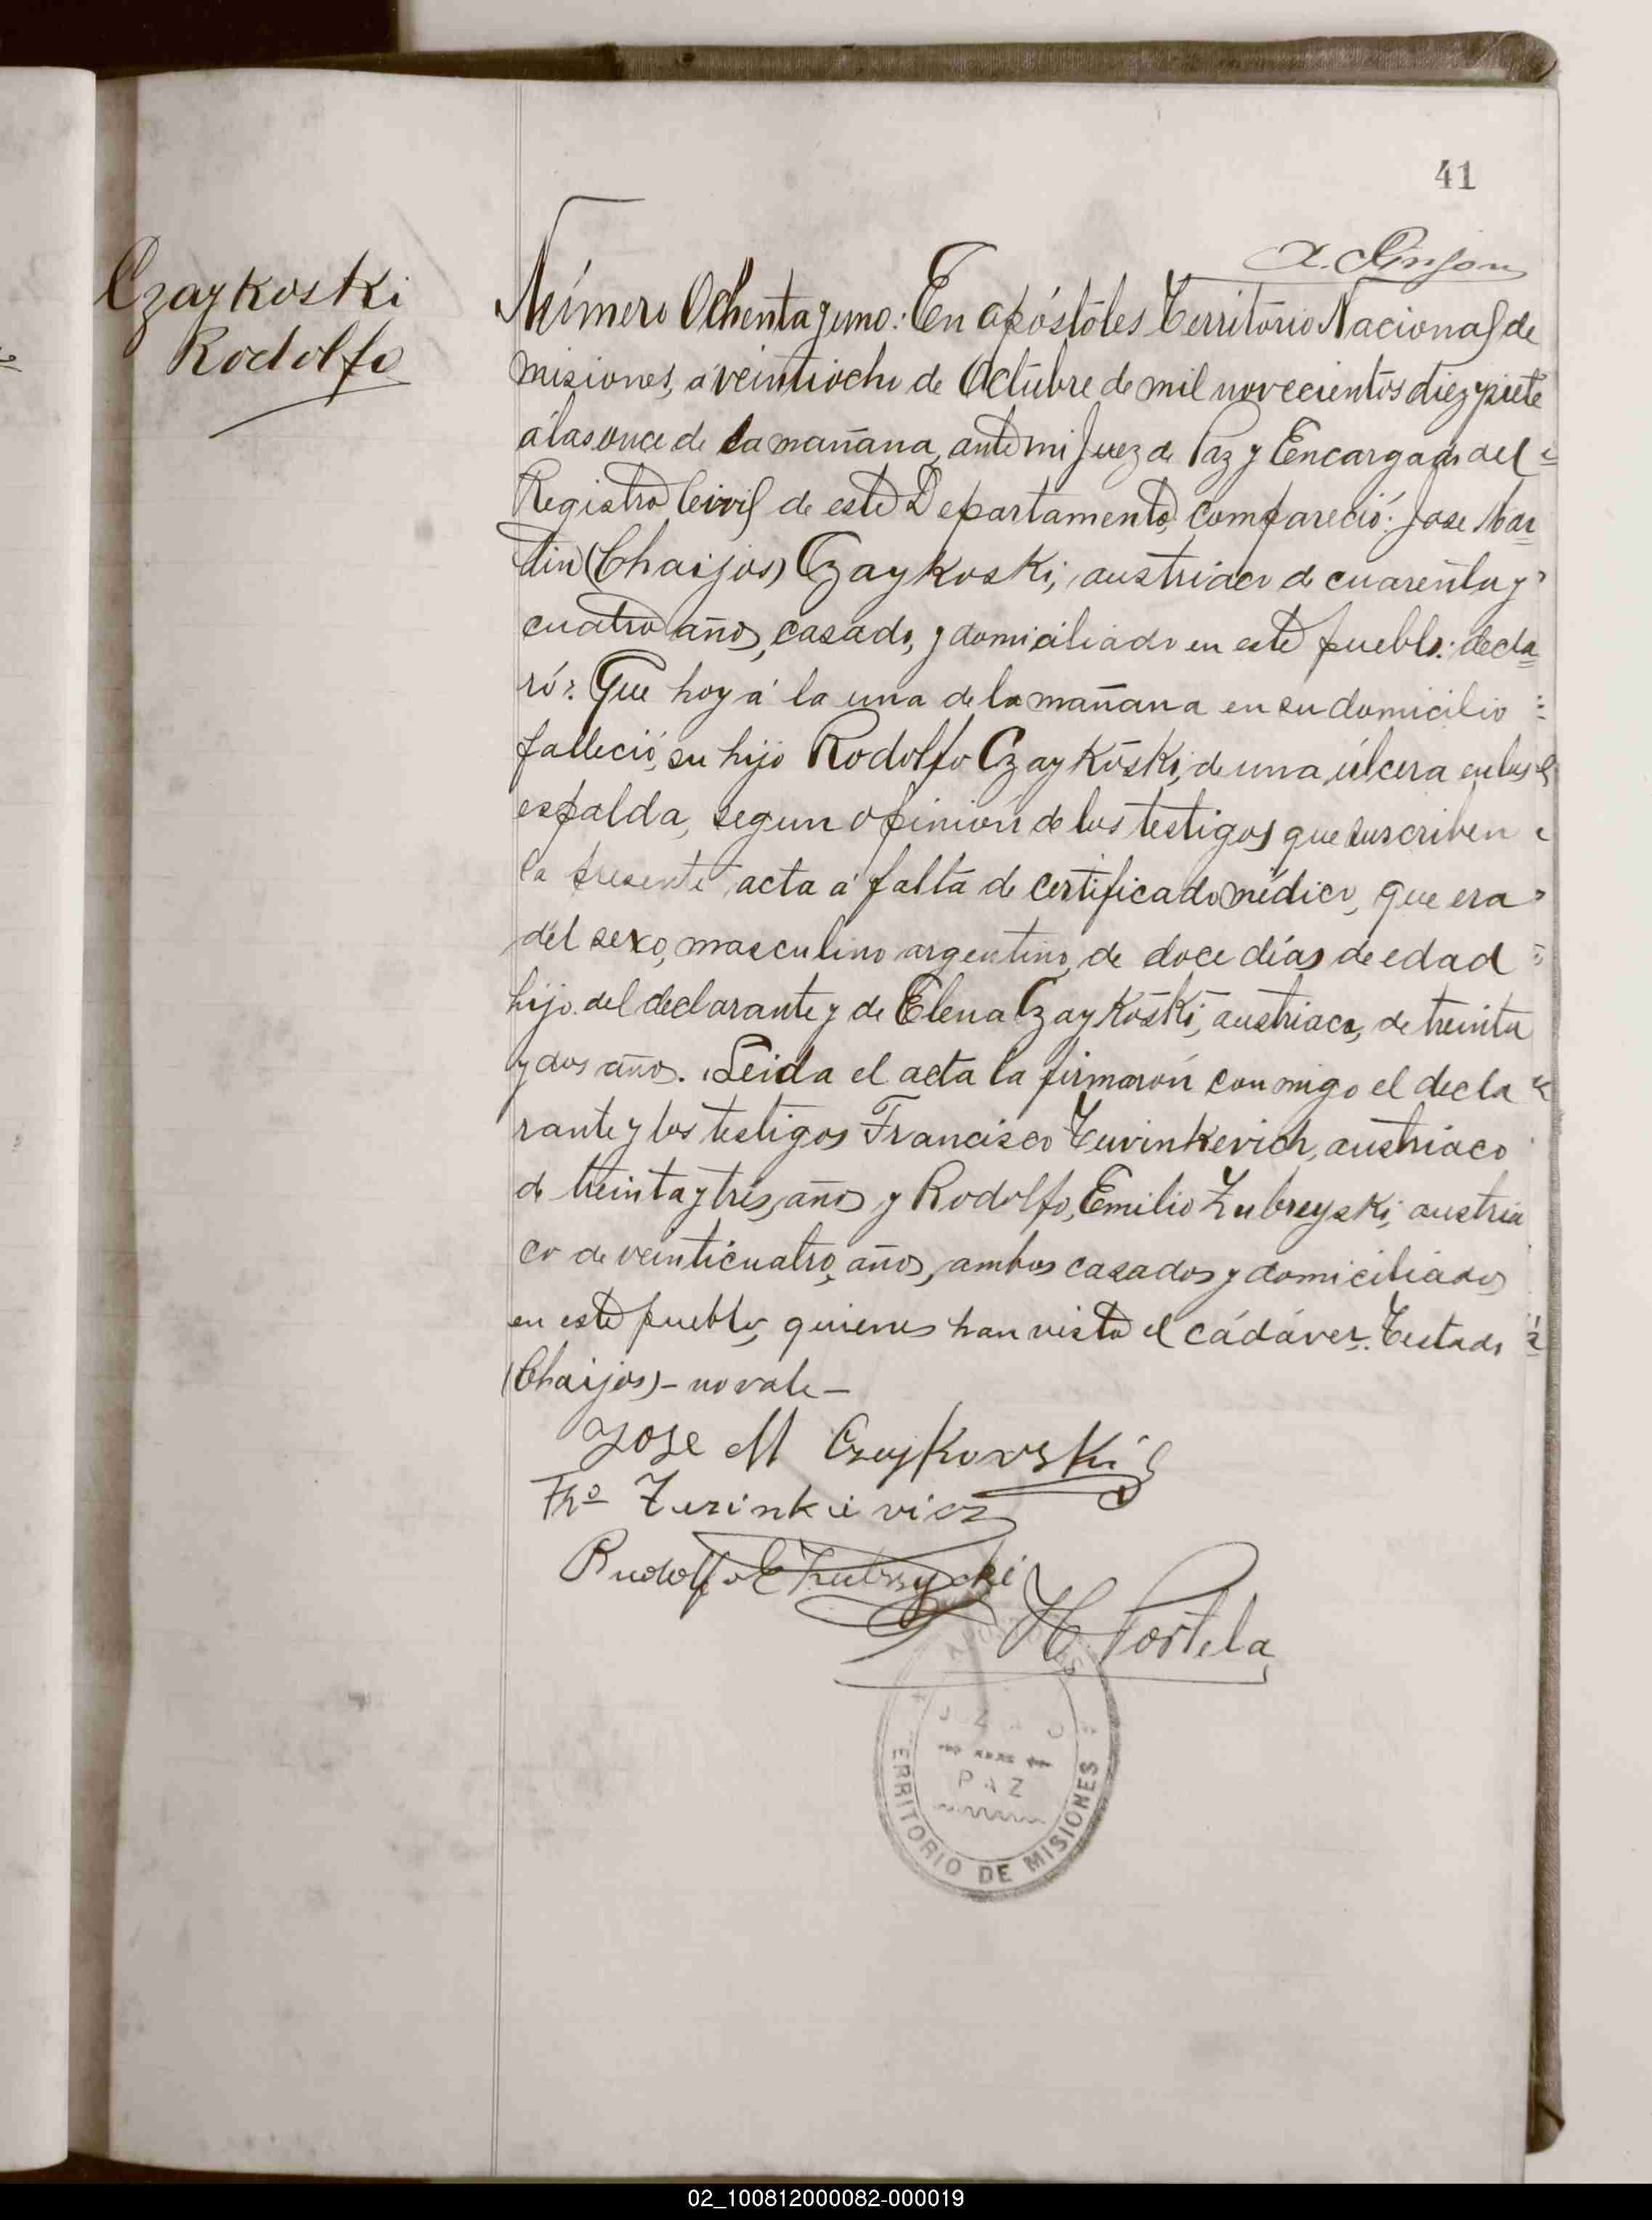 41
Czaykoski
Rodolfo
Número Ochenta y uno: En apóstoles Territorio Nacional de
misiones, a veintiocho de Octubre de mil novecientos diez y siete
á las once de la mañana, ante mi Juez de Paz y Encargado del
Registro Civil de este Departamento, compareció: Jose Mar
tin (Chaijos) Czaykoski, austriaco de cuarenta y
cuatro años, casado, y domiciliado en este pueblo: decla
ró: Que hoy á la una de la mañana en su domicilio
falleció, su hijo Rodolfo Czaykoski, de una úlcera en las
espalda, segun opinión de los testigos que suscriben
la presente acta a falta de certificado médico, que era
del sexo, masculino argentino, de doce días de edad
hijo del declarante y de Elena Czaykoski, austriaca, de treinta
y dos años. Leida el acta la firmarón conmigo el decla
rante y los testigos Francisco Turinkevich, austriaco
de treinta y tres, años y Rodolfo, Emilio Zubreyski, austria
co de veinticuatro, años, ambos casados y domiciliados
en este pueblo, quienes han visto el cádáver. Testado
(Chaijos) - no vale -
Jose M Czajkowski
Fco Turinkievicz
Rudolfo E Zubrzycki
H. Portela
JUZ O
PAZ
ERRITORIO DE MISIONES
02_100812000082-000019